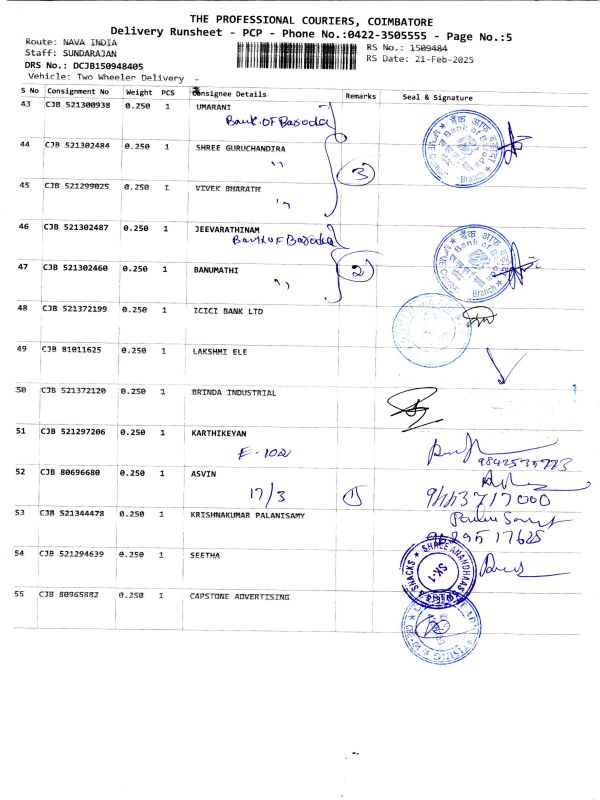 THE PROFESSIONAL COURIERS, COIMBATORE
Delivery Runsheet - PCP - Phone No.:0422-3505555 - Page No.:5
Route: NAVA INDIA
RS No.: 1509484
Staff: SUNDARAJAN
RS Date: 21-Feb-2025
DRS No.: DCJB150948405
Vehicle: Two Wheeler Delivery
S No Consignment No Weight PCS Consignee Details Remarks Seal & Signature
43 CJB 521300938 0.250 1 UMARANI
Bank.Of Baroda
44 CJB 521302484 0.250 1 SHREE GURUCHANDIRA
,,
3
45 CJB 521299025 0.250 1 VIVEK BHARATH
,,
46 CJB 521302487 0.250 1 JEEVARATHINAM
Bank of Baroda
47 CJB 521302460 0.250 1 BANUMATHI
2
,,
48 CJB 521372199 0.250 1 ICICI BANK LTD
49 CJB 81011625 0.250 1 LAKSHMI ELE
50 CJB 521372120 0.250 1 BRINDA INDUSTRIAL
51 CJB 521297206 0.250 1 KARTHIKEYAN
E-102
52 CJB 80696680 0.250 1 ASVIN
17/3 1
53 CJB 521344478 0.250 1 KRISHNAKUMAR PALANISAMY
54 CJB 521294639 0.250 1 SEETHA
SHREE ANANDHAAS
SNACKS
SK-1
55 CJB 80965882 0.250 1 CAPSTONE ADVERTISING